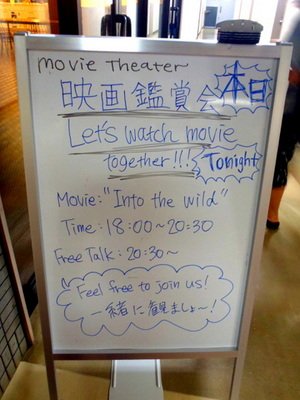 movie Theater
映画鑑賞会 本日
Let's watch movie
together!!! Tonight
Movie: "Into the wild"
Time: 18:00~20:30
Free Talk: 20:30~
Feel free to join us!
一緒に観ましょ~!